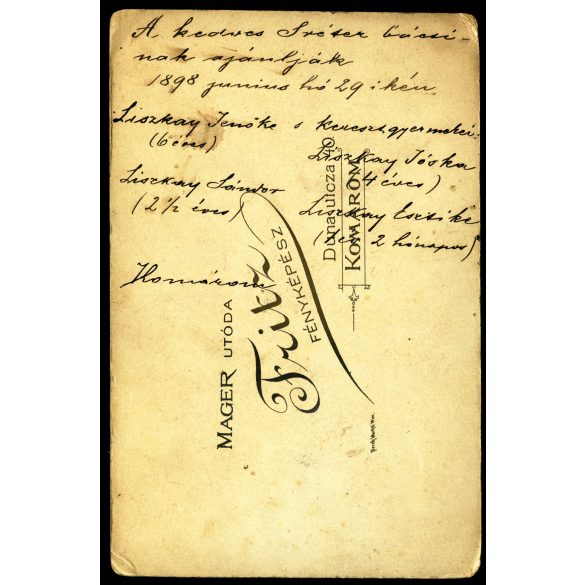 A kedves Préser bácsi-
nak ajánlják
1898 junius hó 29 ikén
Liszkay Jenőke s keresztgyermekei.
(6 éves)
Liszkay Jóska
(4 éves)
Liszkay Sándor
(2½ éves)
Liszkay Esztike
2 hónapos)
Komárom
MAGER UTÓDA
Fritz
FÉNYKÉPÉSZ
Dunautcza 40
KOMÁROM